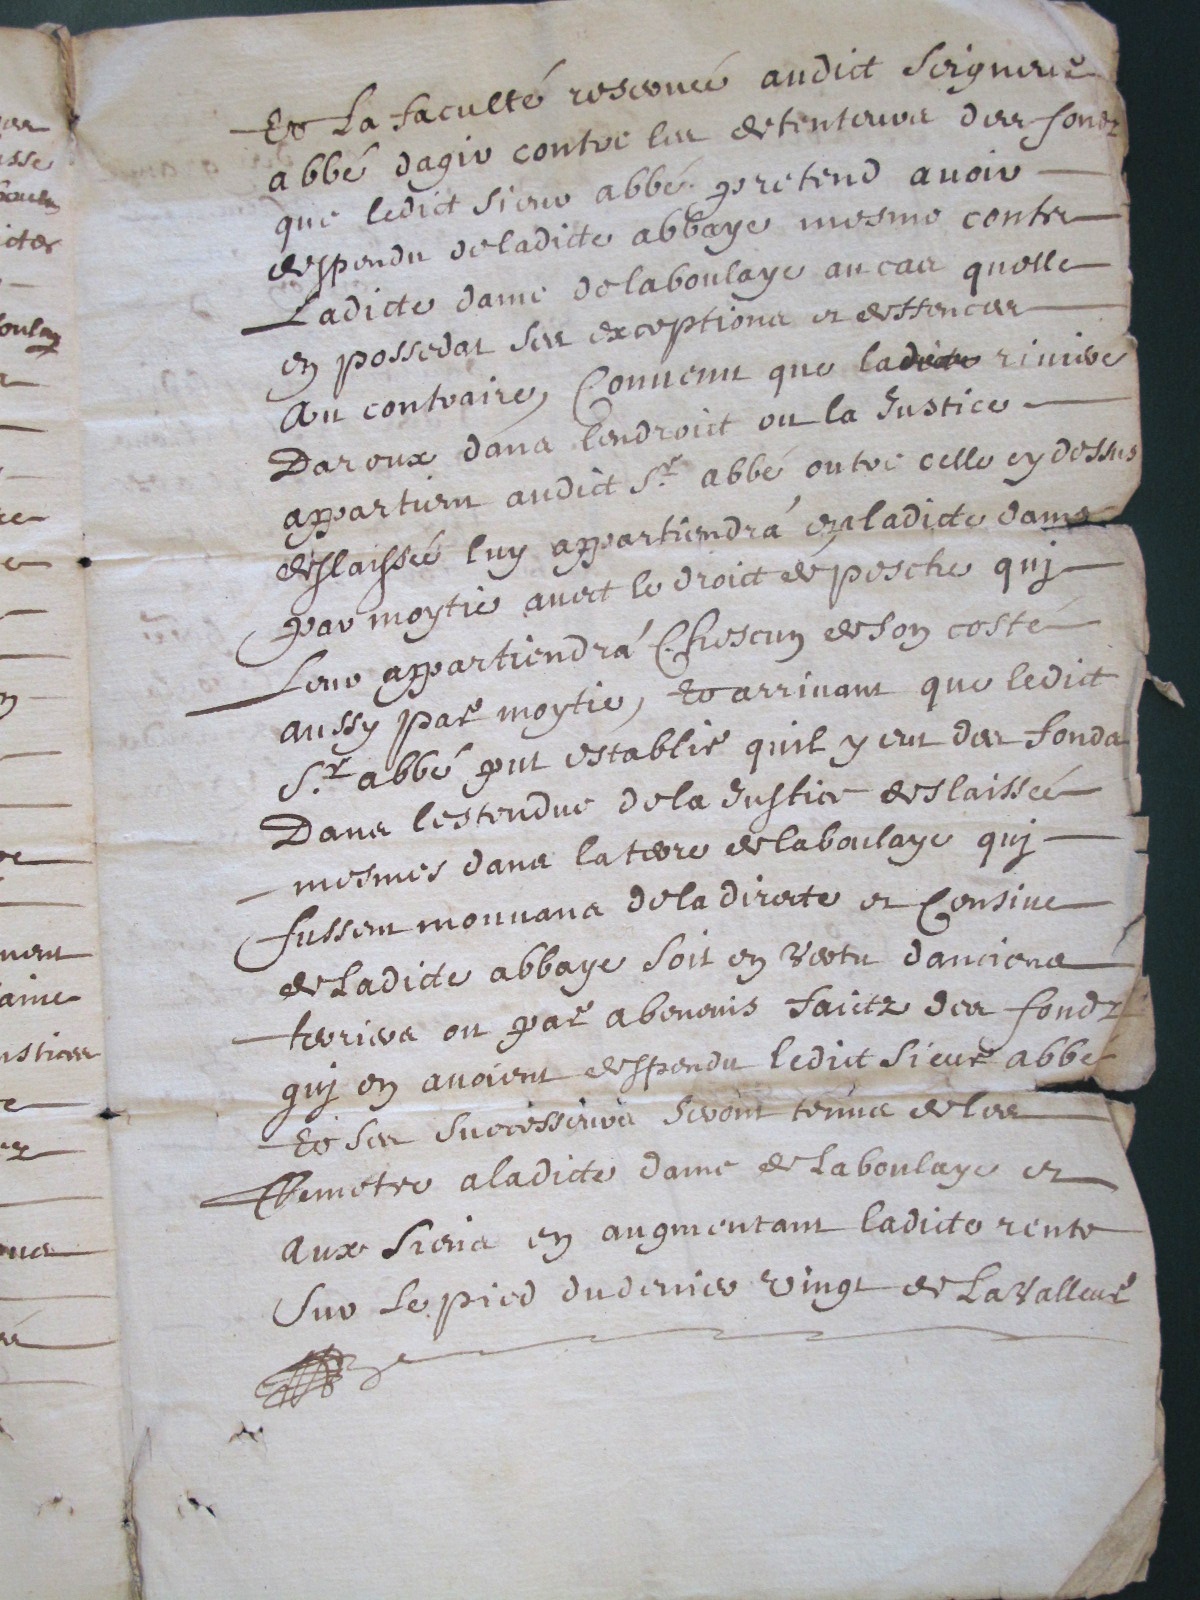 Et La faculté reservée audict Seigneur
abbé dagir contre les detenteurs des fondz
que ledict Sieur abbé pretend avoir
despendu de ladicte abbaye mesme contre
Ladicte dame de laboulaye au cas quelle
en possedat ses exceptions et deffences
Au contraire, Convenu que ladicte riviere
Daroux dans lendroict ou la Justice
appartient audict Sr. abbé outre celle cy dessus
deslaissée luy appartiendrá et a ladicte dame
par moytie avect le droict de pesche quj
Leur appartiendrá Chescun de son costé
aussy par moytie, Et arrivant que ledict
Sr. abbé put establir quil y eut des fonds
Dans lestendue de la Justice deslaissée
mesmes dans la terre de laboulaye quj
fussent mouvans de la directe et Censive
de Ladicte abbaye Soit en Vertu danciens
terriers ou par abenevis faictz des fondz
quj en avoient despendu ledict Sieur abbé
Et ses Successeurs seront tenus de les
Remetre a ladicte dame de Laboulaye et
Aux Siens en augmentant ladicte rente
Sur Le pied du denier Vingt de La Valleur
ver
usse
ictes
boulay
ment
ustices